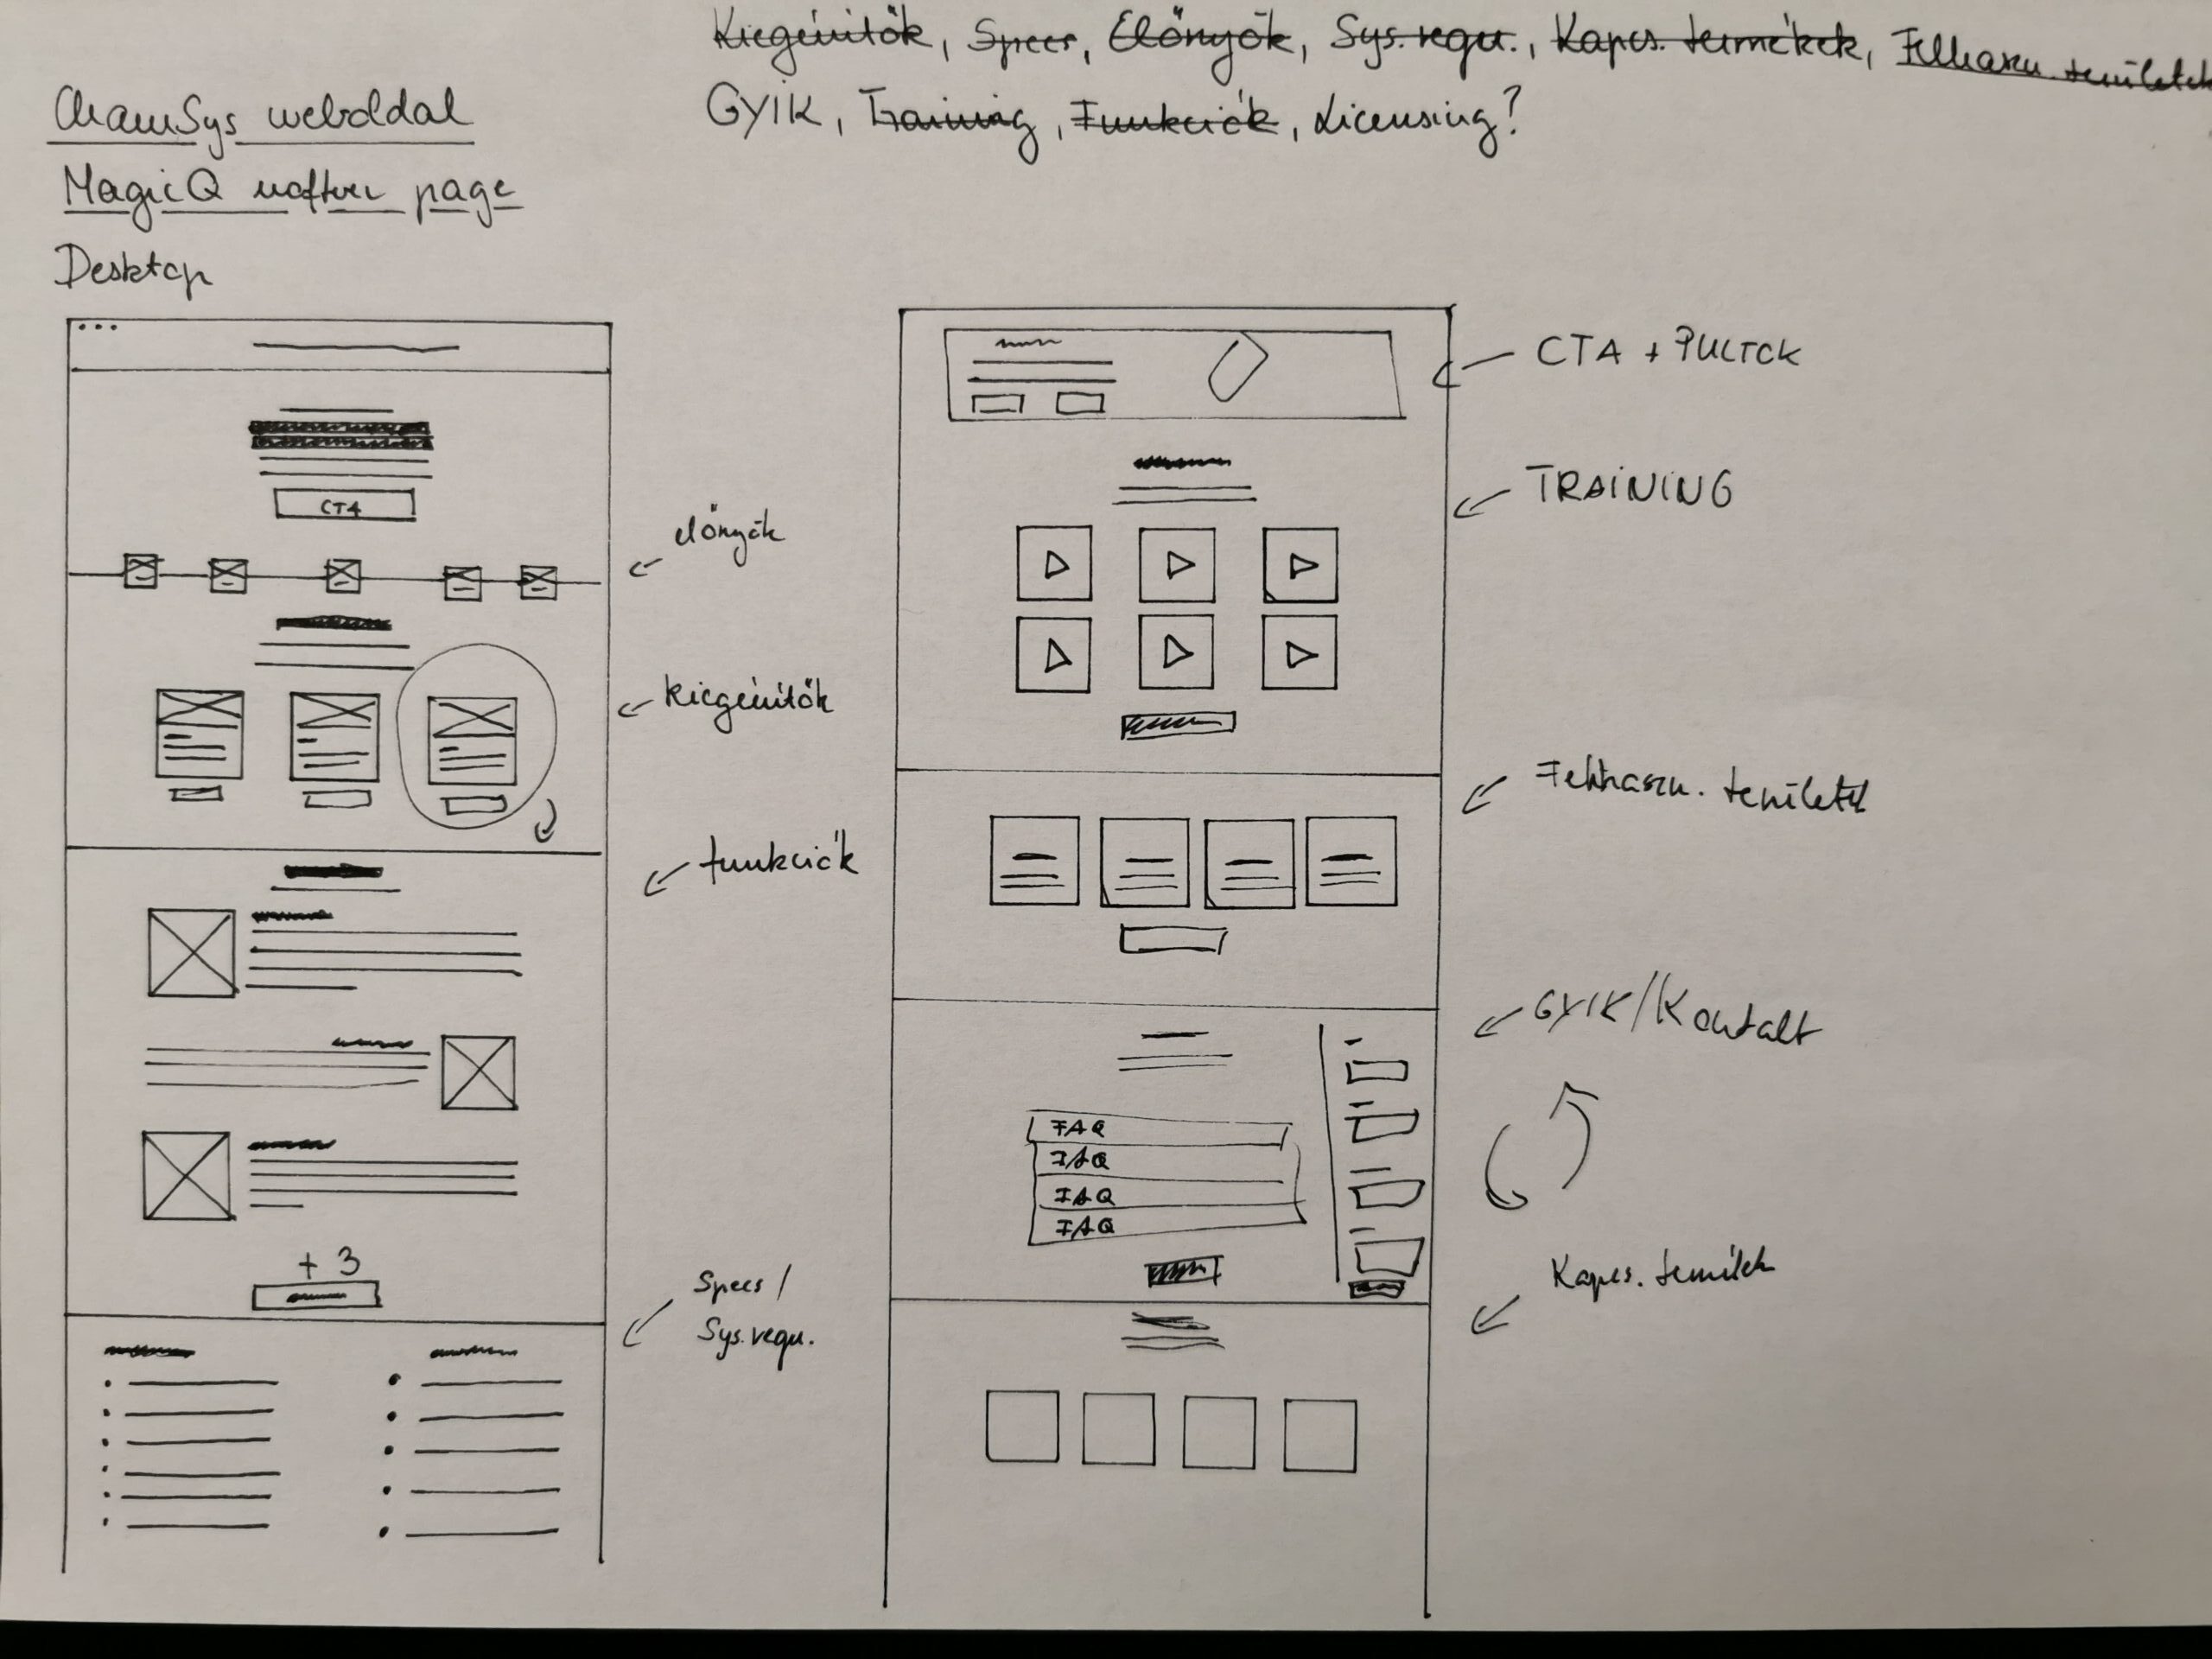 Kiegészítők, Specs, Előnyök, Sys. requ., Kapcs. termékek, Felhaszn. területek
GYIK, Training, Funkciók, Licensing?
ChamSys weboldal
MagicQ szoftver page
Desktop
CTA
előnyök
kiegészítők
funkciók
+ 3
Specs /
Sys. requ.
CTA + PULTOK
TRAINING
Felhaszn. területek
GYIK/Kontakt
FAQ
FAQ
FAQ
FAQ
Kapcs. termékek